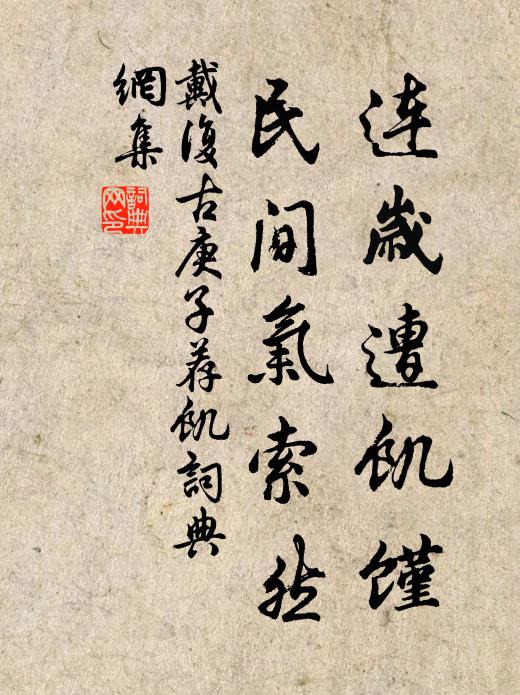 连歲遭飢饉
民间氣索然
戴復古庚子荐飢詞典
網集
詞典网印